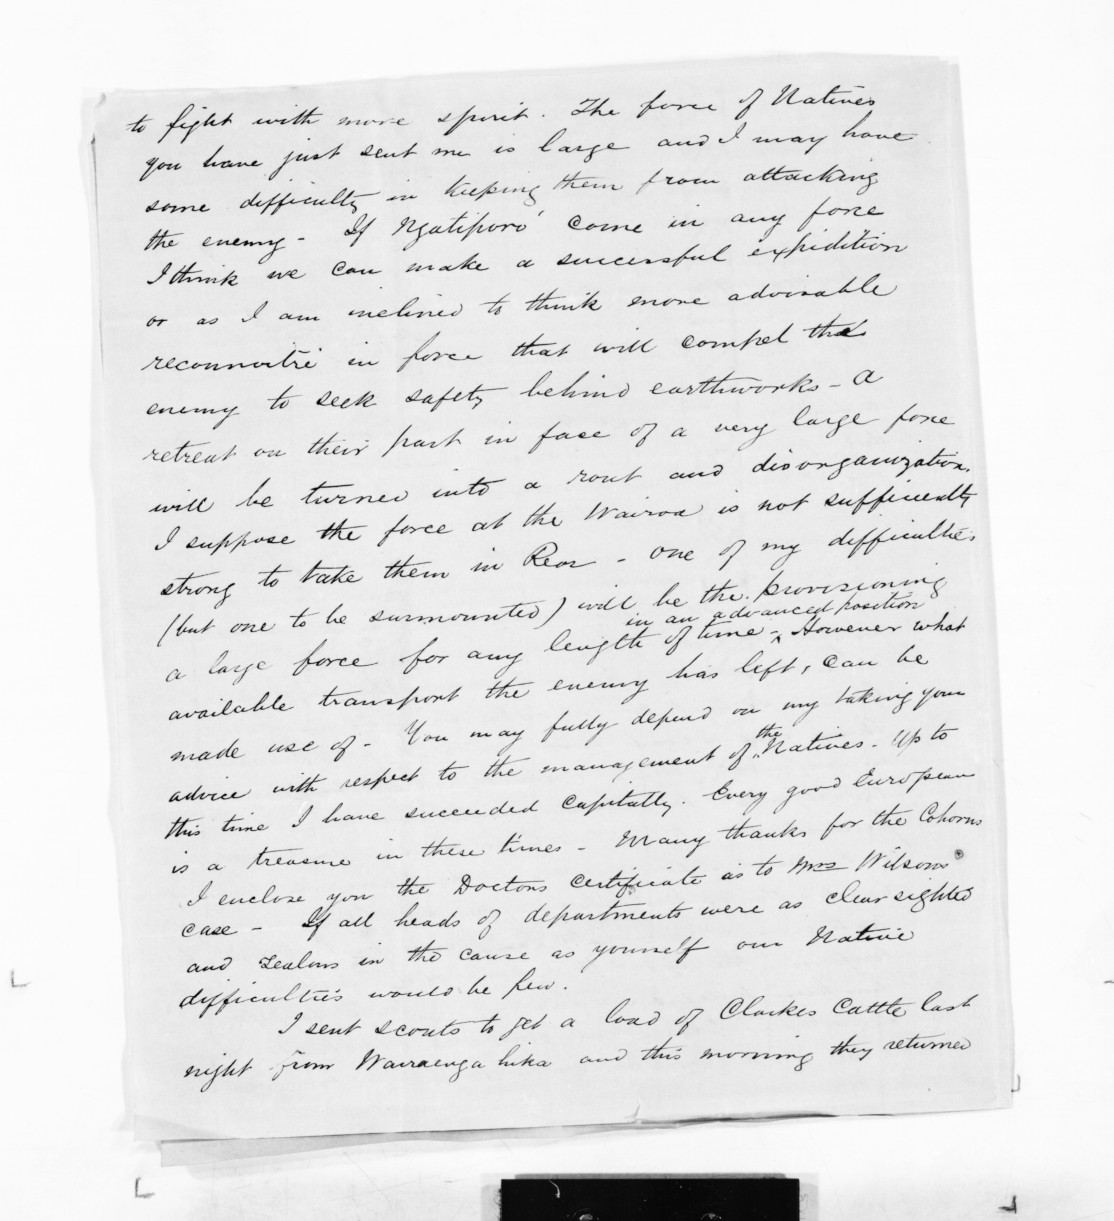 to fight with more spirit. The force of Natives
you have just sent me is large and I may have
some difficulty in keeping them from attacking
the enemy - If Ngatiporo' come in any force
I think we can make a successful expidition
or as I am inclined to think more advisable
reconnoitre in force that will compel the
enemy to seek safety behind earthworks - A
retreat on their part in face of a very large force
will be turned into a rout and disorganization.
I suppose the force at the Wairoa is not sufficiently
strong to take them in Rear - one of my difficulties
(but one to be surmounted) will be the provisioning
in an advanced position
a large force for any length of time - ^ However what
available transport the enemy has left, can be
made use of - You may fully depend on my taking your
the
advice with respect to the management of ^ Natives. Up to
this time I have succeeded capitally. Every good European
is a treasure in these times - Many thanks for the Cohorns
I enclose you the Doctors certificate as to Mrs Wilsons
case - If all heads of departments were as clear sighted
and zealous in the cause as yourself our Native
difficulties would be few.
I sent scouts to get a load of Clarkes Cattle last
night from Waeraenga hika and this morning they returned